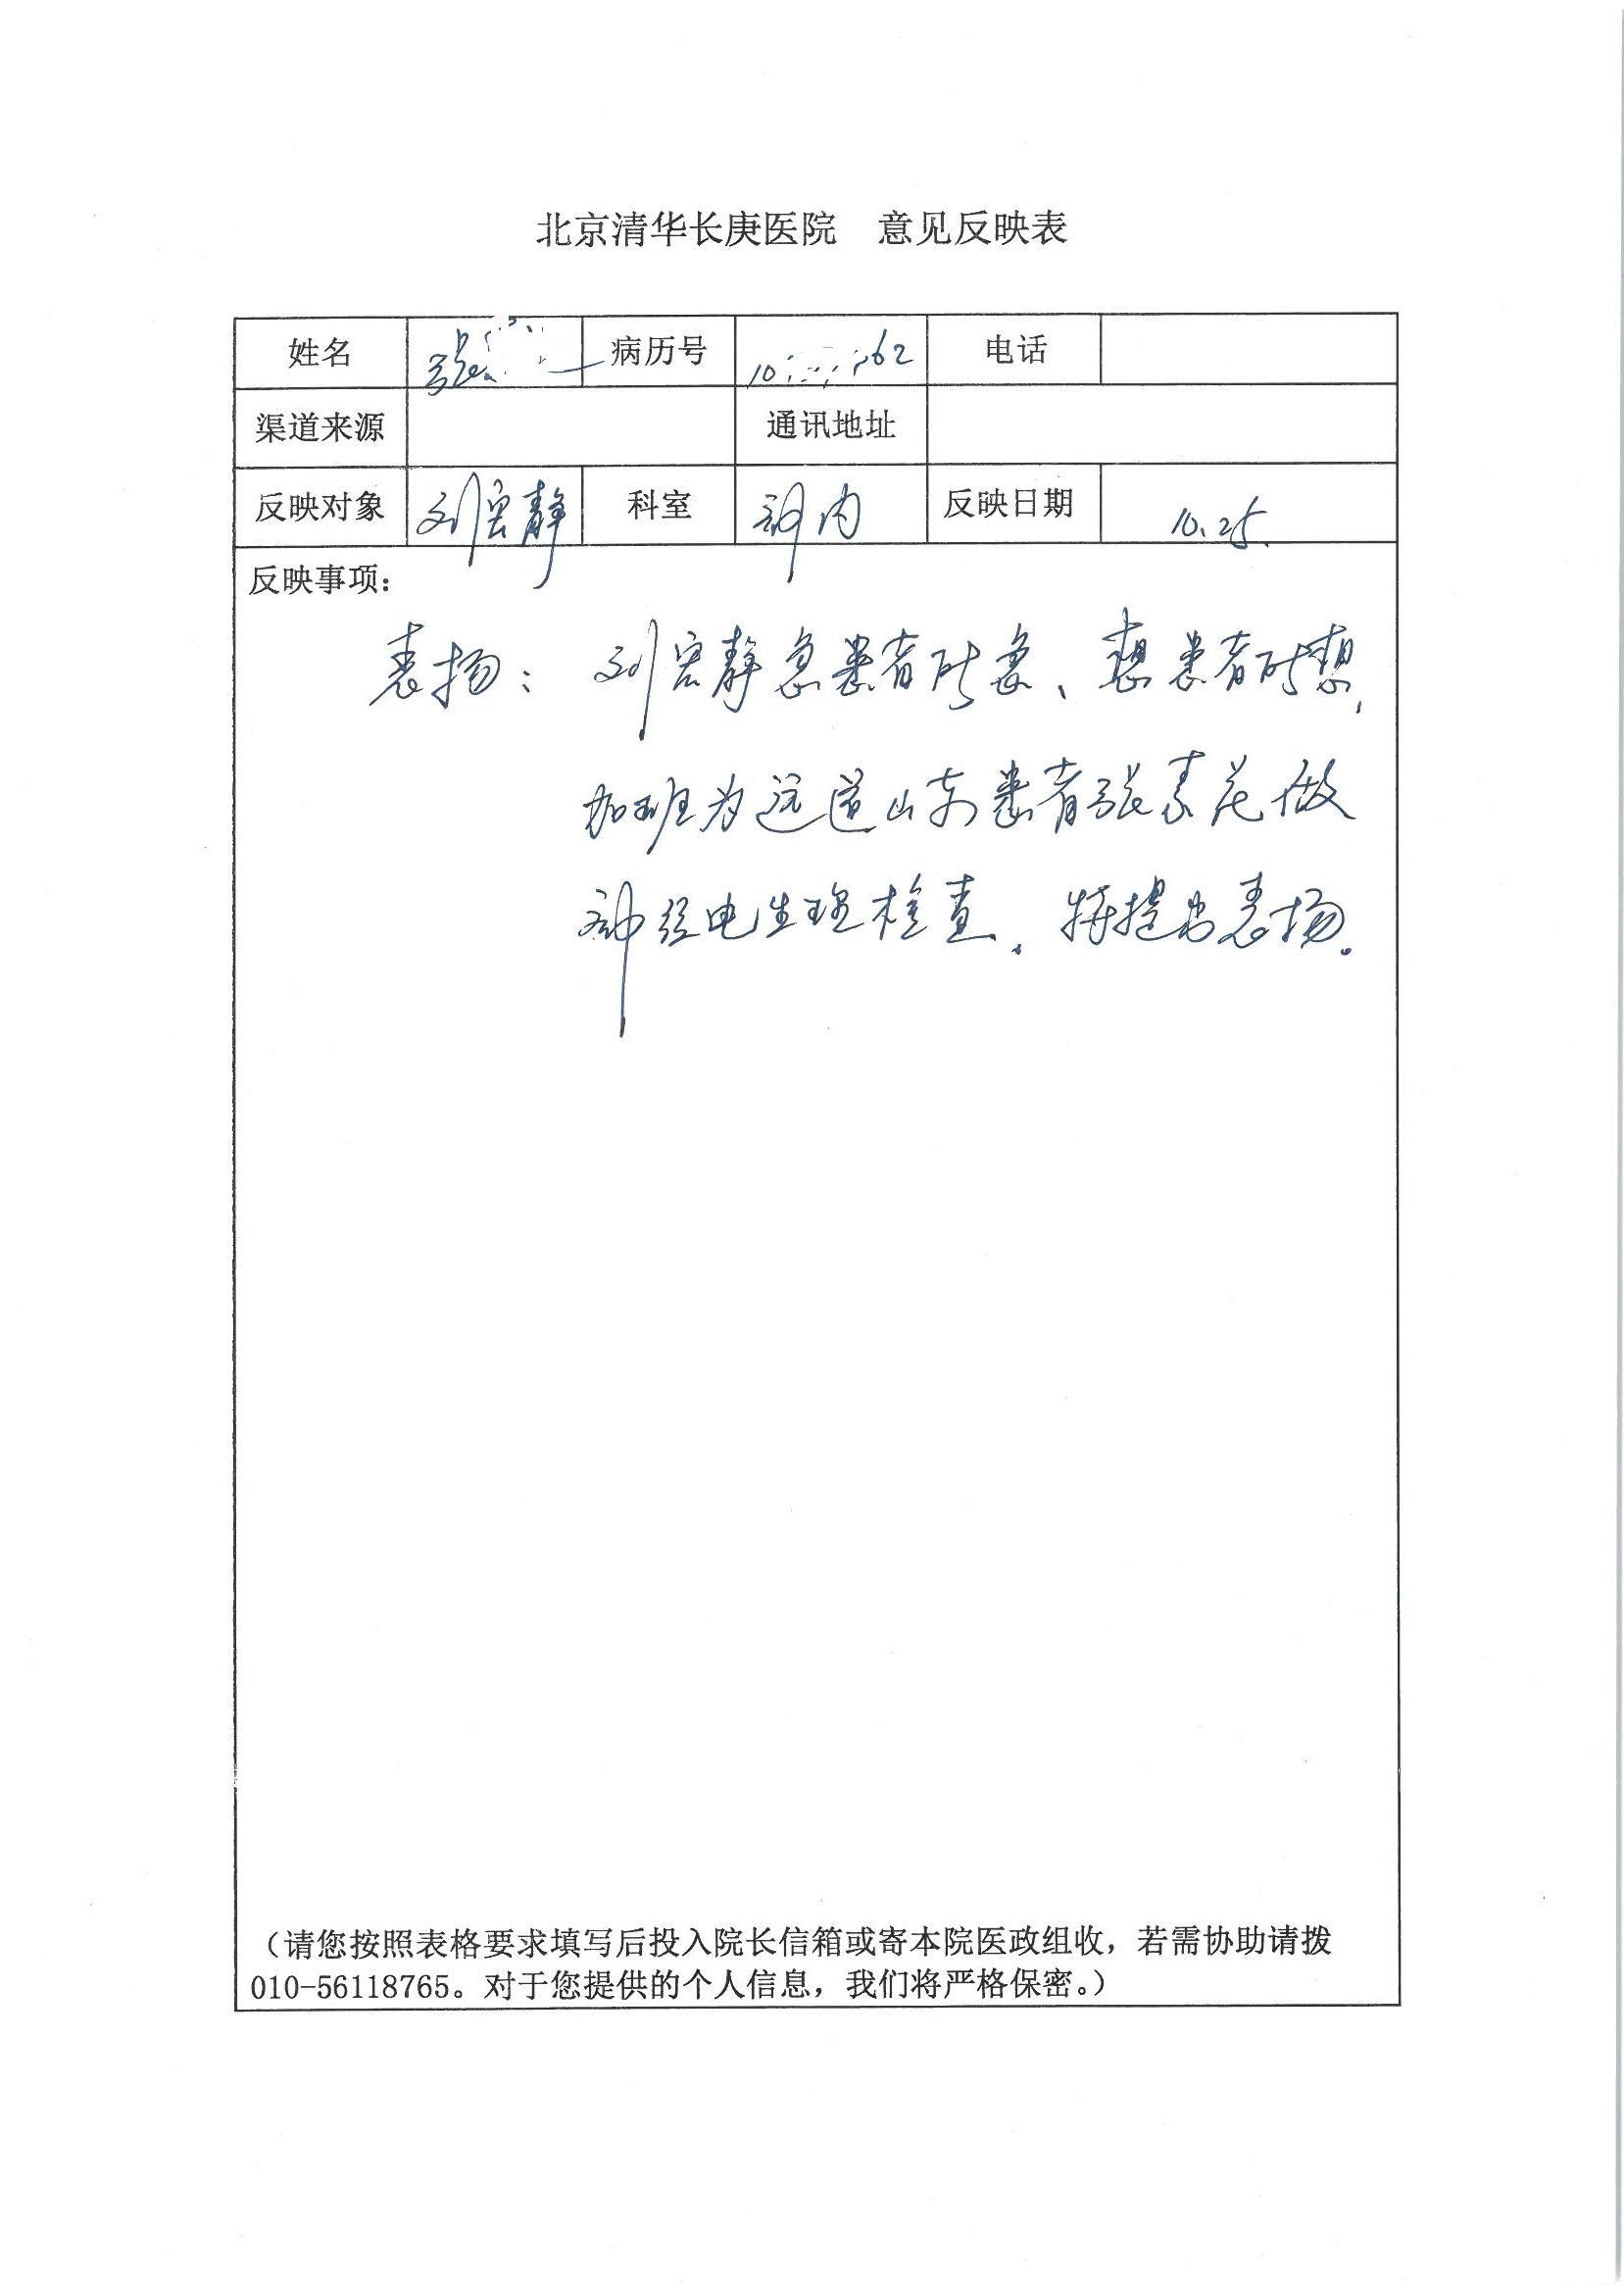 北京清华长庚医院 意见反映表
姓名 张 病历号 10 62 电话
渠道来源 通讯地址
反映对象 刘宏静 科室 神内 反映日期 10.25.
反映事项：
表扬：刘宏静急患者所急、想患者所想，
加班为远道山东患者张素花做
神经电生理检查，特提出表扬。
（请您按照表格要求填写后投入院长信箱或寄本院医政组收，若需协助请拨
010-56118765。对于您提供的个人信息，我们将严格保密。）